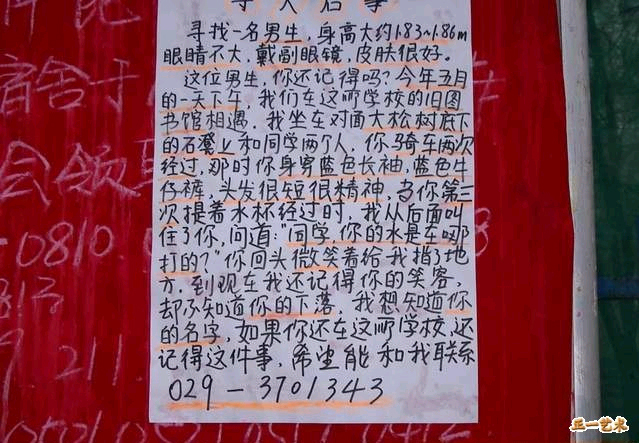 寻人启事
寻找一名男生，身高大约1.83~1.86m
眼睛不大，戴副眼镜，皮肤很好。
这位男生，你还记得吗？今年五月
的一天下午，我们在这所学校的旧图
书馆相遇，我坐在对面大松树底下
的石凳上和同学两个人，你骑车两次
经过，那时你身穿蓝色长袖，蓝色牛
仔裤，头发很短很精神，当你第三
次提着水杯经过时，我从后面叫
住了你，问道："同学，你的水是在哪
打的？"你回头微笑着给我指了地
方，到现在我还记得你的笑容，
却不知道你的下落，我想知道你
的名字，如果你还在这所学校，还
记得这件事，希望能和我联系
029-3701343
宿舍于
会领
-0810
211
正一艺术